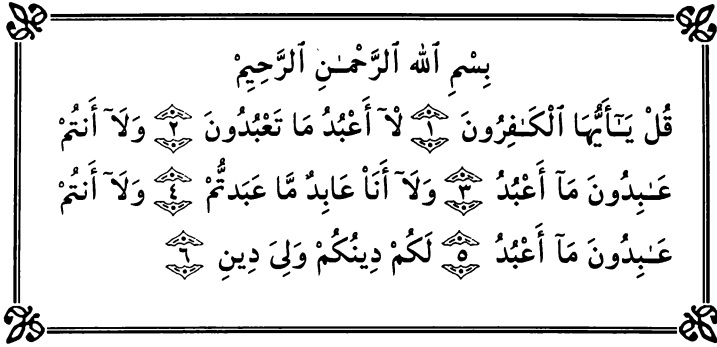 بِسْمِ ٱللهِ ٱلرَّحْمَـٰنِ ٱلرَّحِيمْ
قُلْ يَـٰٓأَيُّهَا ٱلْكَـٰفِرُونَ ١ لْآ أَعْبُدُ مَا تَعْبُدُونَ ٢ وَلَآ أَنتُمْ
عَـٰبِدُونَ مَآ أَعْبُدُ ٣ وَلَآ أَنَا۠ عَابِدٌ مَّا عَبَدتُّمْ ٤ وَلَآ أَنتُمْ
عَـٰبِدُونَ مَآ أَعْبُدُ ٥ لَكُمْ دِينُكُمْ وَلِىَ دِينِ ٦